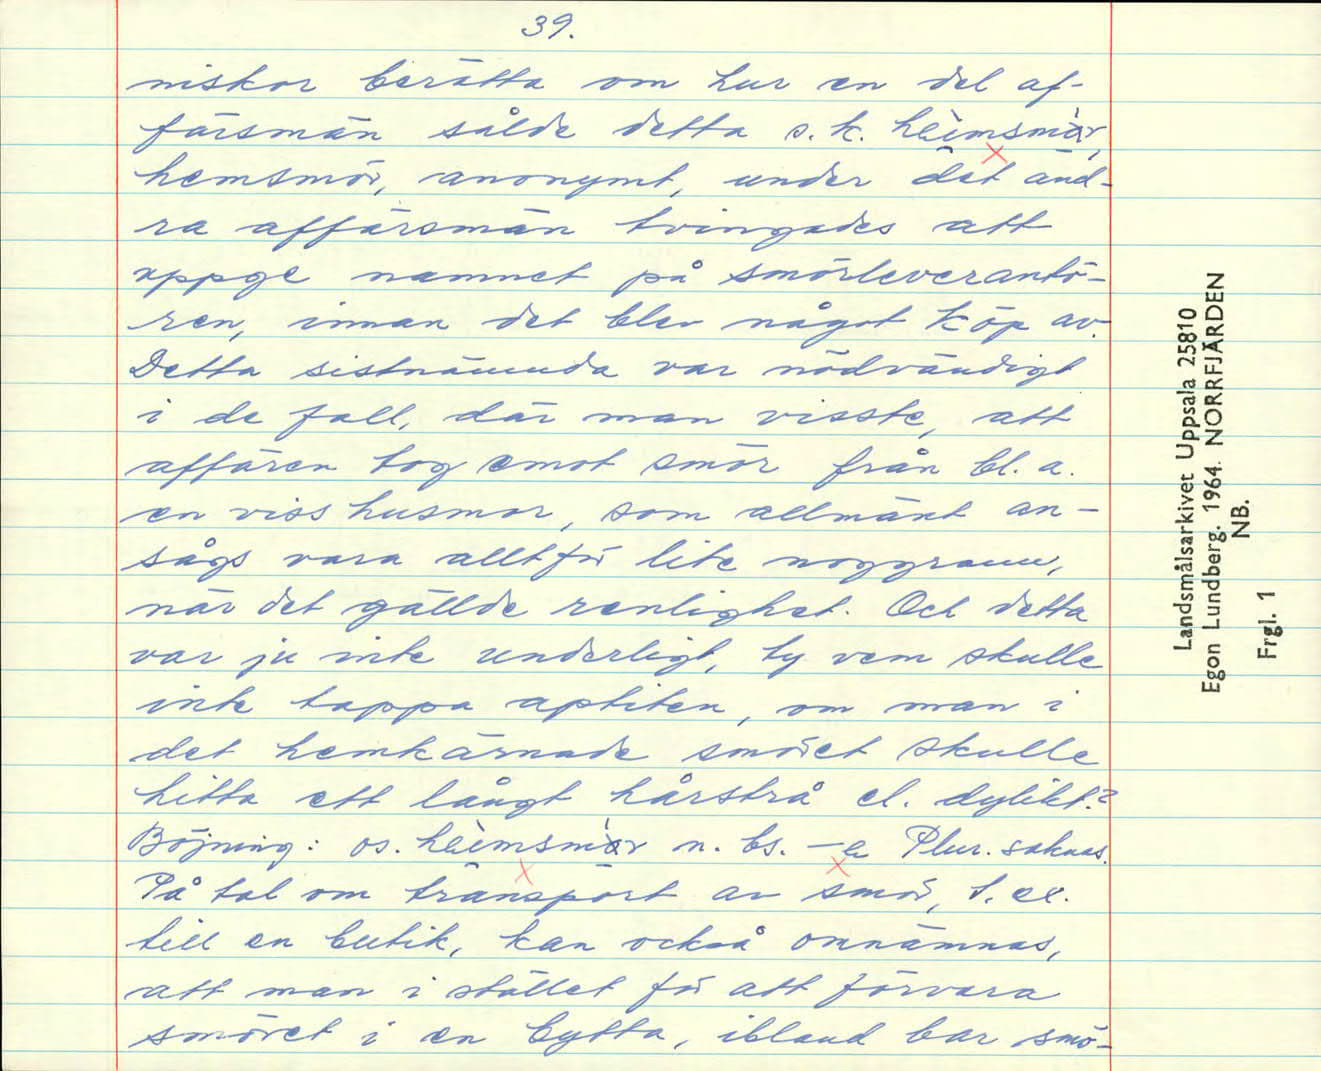 39.
niskor berätta om hur en del af-
färsmän sålde detta s.k. hèimsmàr,
hemsmör, anonymt, under det änd-
ra affärsmän tvingades att
uppge namnet på smörleverantö-
ren, innan det blev något köp av.
Detta sistnämnda var nödvändigt
i de fall, där man visste, att
affären tog emot smör från bl. a.
en viss husmor, som allmänt an-
sågs vara alltför lite noggrann,
när det gällde renlighet. Och detta
var ju inte underligt, ty vem skulle
inte tappa aptiten, om man i
det hemkärnade smöret skulle
hitta ett långt hårstrå el. dylikt?
Böjning: os. hèimsmàr n. bs. -e Plur. saknas.
På tal om transport av smör, t. ex.
till en butik, kan också omnämnas,
att man i stället för att förvara
smöret i en bytta, ibland bar smö-
Landsmålsarkivet Uppsala 25810
Egon Lundberg. 1964. NORRFJÄRDEN
NB.
Frgl. 1